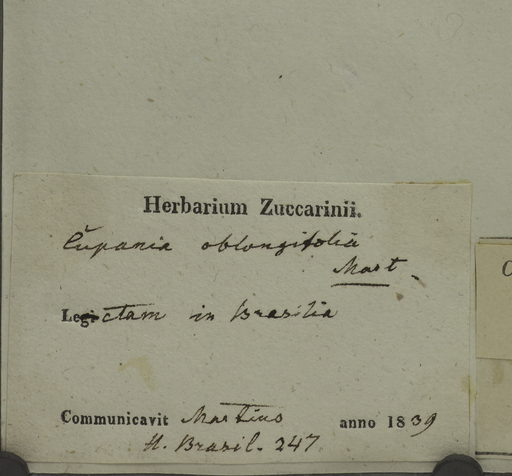 Herbarium Zuccarinii.
Cupania oblongifolia
Mart.
Lectam in Brasilia
Communicavit Martius anno 1839
H. Brazil. 247